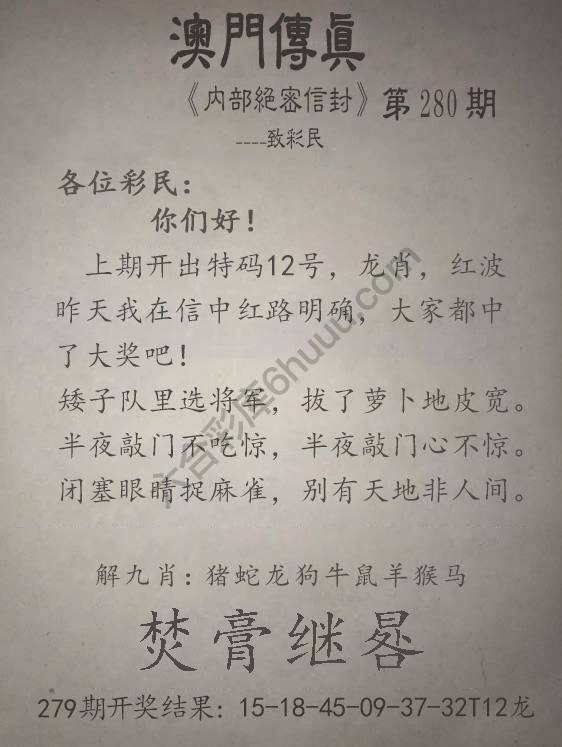 澳門傳真
《内部絕密信封》第280期
----致彩民
各位彩民:
你们好!
上期开出特码12号,龙肖,红波
昨天我在信中红路明确,大家都中
了大奖吧!
矮子队里选将军,拔了萝卜地皮宽。
半夜敲门不吃惊,半夜敲门心不惊。
闭塞眼睛捉麻雀,别有天地非人间。
六合彩库6huuu.com
解九肖:猪蛇龙狗牛鼠羊猴马
焚膏继晷
279期开奖结果:15-18-45-09-37-32T12龙